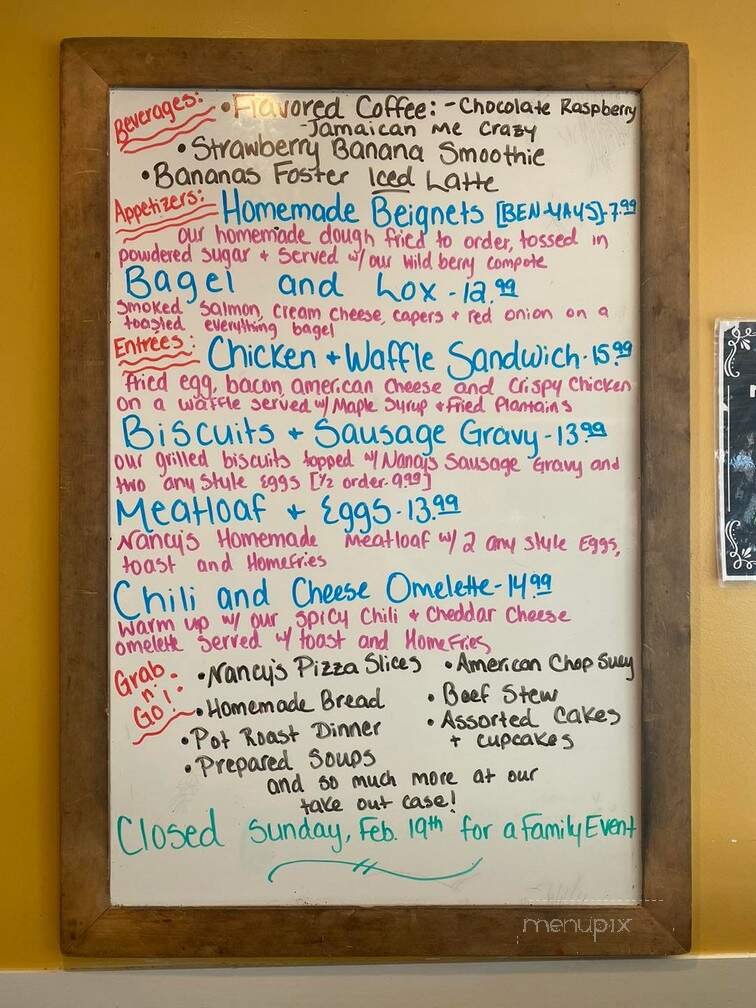 Beverages: • Flavored Coffee: - Chocolate Raspberry
- Jamaican Me Crazy
• Strawberry Banana Smoothie
• Bananas Foster Iced Latte
Appetizers: Homemade Beignets [BEN-YAYS]-7.99
our homemade dough fried to order, tossed in
powdered sugar + served w/ our wild berry compote
Bagel and Lox - 12.99
Smoked Salmon, cream cheese, capers + red onion on a
toasted everything bagel
Entrees: Chicken + Waffle Sandwich - 15.99
Fried egg, bacon, american cheese and crispy chicken
on a waffle served w/ Maple Syrup + Fried Plantains
Biscuits + Sausage Gravy - 13.99
our grilled biscuits topped w/ Nancy's Sausage Gravy and
two any style Eggs [1/2 order - 9.99]
Meatloaf + Eggs - 13.99
Nancy's Homemade Meatloaf w/ 2 any style Eggs,
toast and Homefries
Chili and Cheese Omelette - 14.99
Warm up w/ our spicy Chili + Cheddar Cheese
omelette served w/ toast and HomeFries
Grab n' Go!
• Nancy's Pizza Slices • American Chop Suey
• Homemade Bread • Beef Stew
• Pot Roast Dinner • Assorted Cakes
+ cupcakes
• Prepared Soups
and so much more at our
take out case!
Closed Sunday, Feb. 19th for a Family Event
menupix